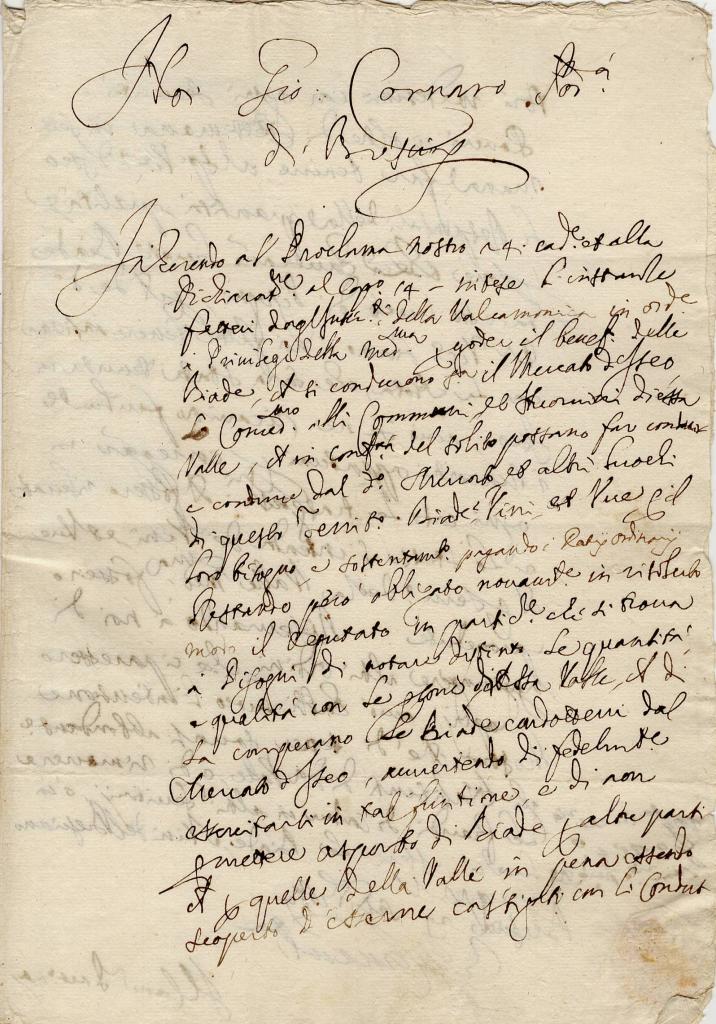 Noi Gio: Cornaro Pod.à
di Brescia
Inherendo al Proclama nostro a 4: cad.e et alla
Dichiarat.ne al Cap.o 14 - intese le instanze
fatteci dagl' della Valcamonica in ord.e
a Privilegi della med.ma goder il benef. delle
Biade, che si conducono sù il Mercato d'Iseo
Conced. alli Communi, et Huomini di essa
Valle, che in conf.tà del solito possano far
e condurre dal d.o Mercato, et altri luochi
di questo Territ.o Biade, Vini, et Vue p il
loro bisogno, e sostentam.to pagando i Datij ordinarij
Restando però obligato novam.te in ristretto
modo il Deputato in partic.re che si trova
à Bisogni di notare distint.e le quantità,
e qualità con le psone di essa Valle, che di
la comperano le Biade condottevi dal
Mercato d'Iseo, avvertendo di fedelm.te
essercitarsi in tal funtione, e di non
pmettere asporto di Biade p altre parti
che p quelle della Valle in pena essendo
scoperto d'esserne castigati con li Condut